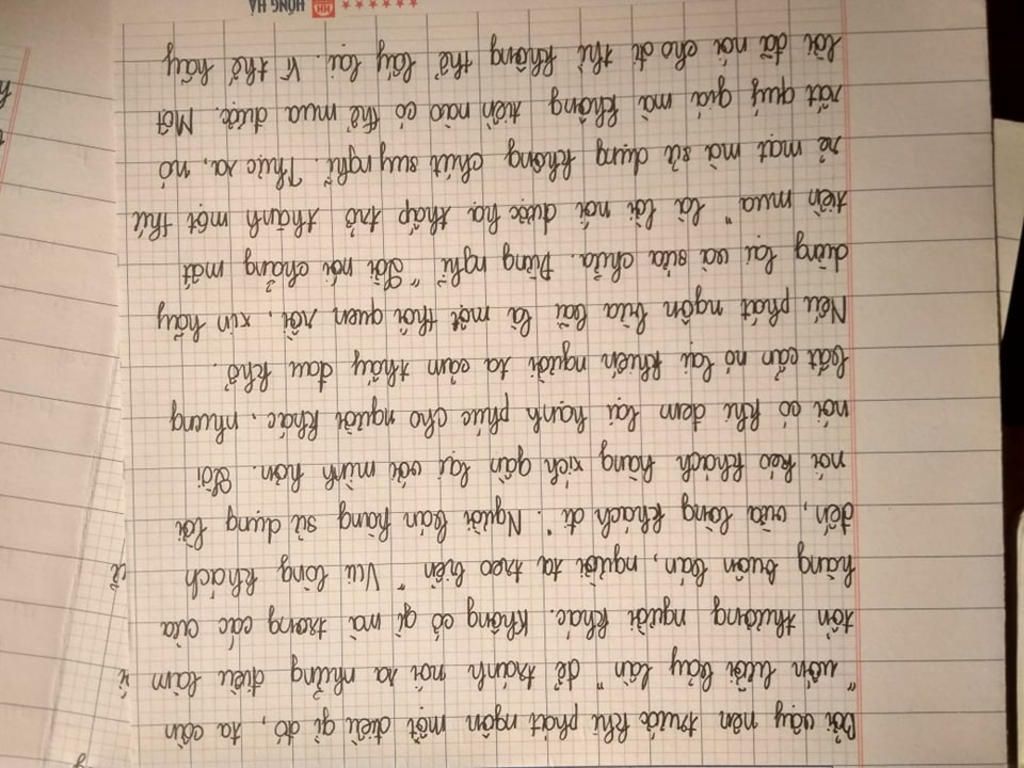 Bởi vậy nên trước khi phát ngôn một điều gì đó, ta cần
"uốn lưỡi bảy lần" để tránh nói ra những điều làm
tổn thương người khác. Không cớ gì mà trong các cửa
hàng buôn bán, người ta treo biển "Vui lòng khách
đến, vừa lòng khách đi". Người bán hàng sử dụng lời
nói kéo khách hàng xích gần lại với mình hơn. Lời
nói có khi đem lại hạnh phúc cho người khác, nhưng
bất cẩn nó lại khiến người ta cảm thấy đau khổ.
Nếu phát ngôn bừa bãi là một thói quen rồi, xin hãy
dừng lại và sửa chữa. Đừng nghĩ "Lời nói chẳng mất
tiền mua" là lời nói được hạ thấp trở thành một thứ
rẻ mạt mà sử dụng không chút suy nghĩ. Thực ra, nó
rất quý giá mà không tiền nào có thể mua được. Một
lời đã nói cho đi thì không thể lấy lại. Vì thế hãy
HỒNG HÀ
HH